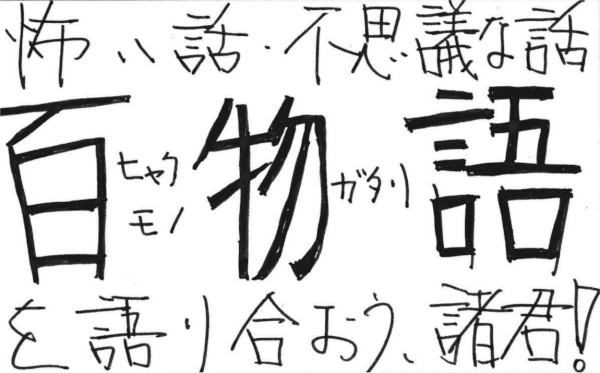 怖い話・不思議な話
百物語
ヒャク
モノ
ガタリ
を語り合おう、諸君!